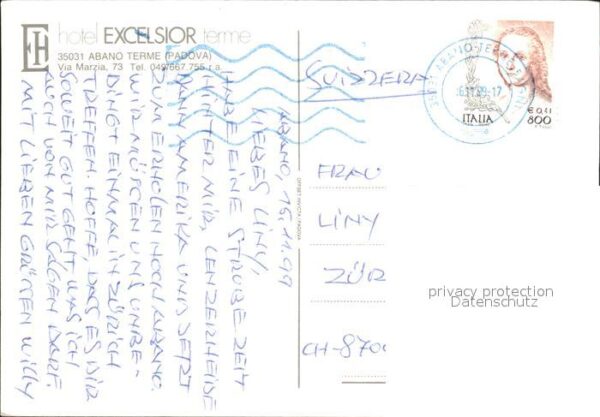 hotel EXCELSIOR terme
35031 ABANO TERME (PADOVA)
Via Marzia, 73 Tel. 049/667.755 r.a.
SVIZZERA
ITALIA
€ 0,41
800
ABANO, 15.11.99
LIEBES LINY,
HABE EINE STRUBE ZEIT
HINTER MIR, LENZERHEIDE
DANN AMERIKA UND JETZT
ZUM ERHOLEN NOCH ABANO.
WIR MÜSSEN UNS UNBE-
DINGT EINMAL IN ZÜRICH
TREFFEN. HOFFE, DAS ES DIR
SOWEIT GUT GEHT WAS ICH
AUCH VON MIR SAGEN DARF.
MIT LIEBEN GRÜSSEN WILLY
FRAU
LINY
ZÜR
CH-8700
privacy protection
Datenschutz